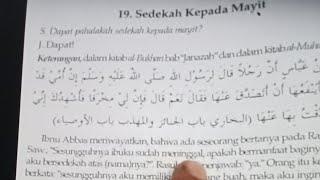 19. Sedekah Kepada Mayit
S. Dapat pahalakah sedekah kepada mayit?
J. Dapat!
Keterangan, dalam kitab al-Bukhari bab "Janazah" dan dalam kitab al-Muha
عَبَّاسٍ أَنَّ رَجُلًا قَالَ لِرَسُولِ اللهِ صَلَّى اللهُ عَلَيْهِ وَسَلَّمَ إِنَّ أُمِّي قَدْ
أَنْ أَتَصَدَّقَ عَنْهَا قَالَ نَعَمْ قَالَ فَإِنَّ لِي مَخْرَفًا فَأُشْهِدُكَ أَنِّي
عَنْهَا. (البخاري باب الجنائز والمهذب باب الأوصياء)
Ibnu Abbas meriwayatkan, bahwa ada seseorang bertanya pada Ra
Saw., "Sesungguhnya ibuku sudah meninggal, apakah bermanfaat bagin
aku bersedekah atas (namanya)?" menjawab: "ya." Orang itu
berkata: "sesungguhnya aku memiliki buah, maka aku ingin